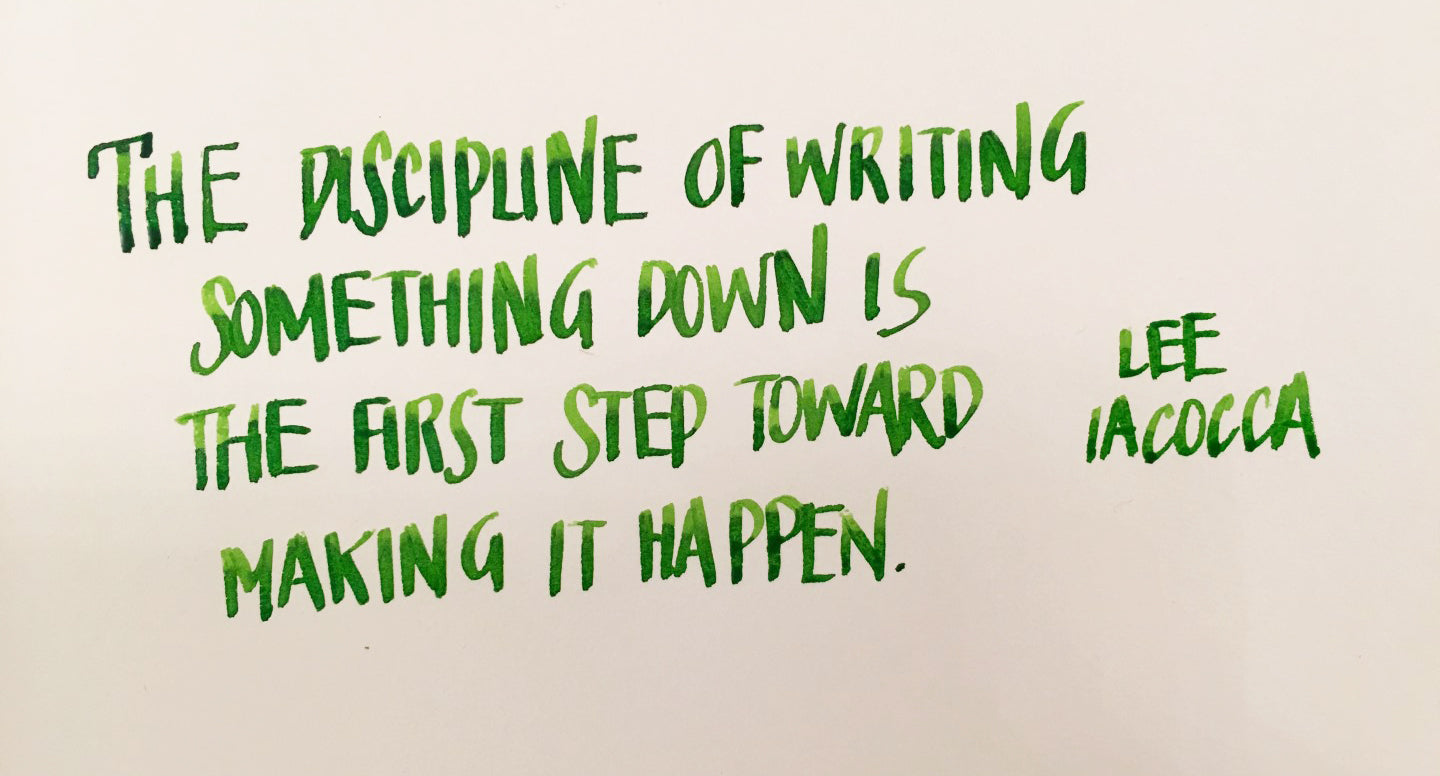 THE DISCIPLINE OF WRITING
SOMETHING DOWN IS
THE FIRST STEP TOWARD
MAKING IT HAPPEN.
LEE
IACOCCA